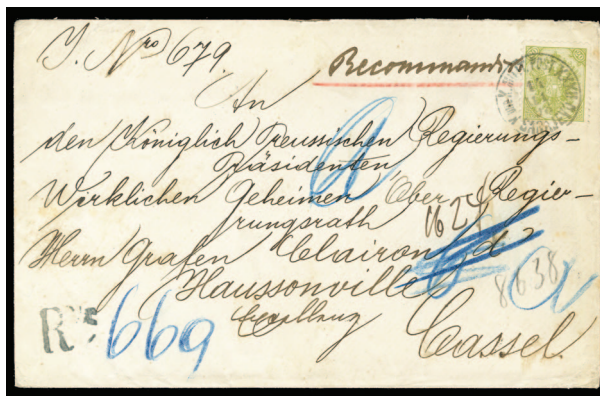 J. Nro 679.
Recommandi
An
den Königlich Preussischen Regierungs-
Präsidenten,
Wirklichen Geheimen Ober Regier-
rungsrath
Herrn Grafen Clairon d
Haussonville
Excellenz
Cassel.
R No 669
1621
8638
a